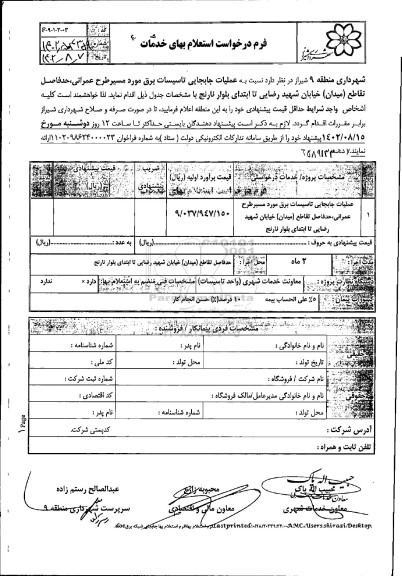 فرم درخواست استعلام بهای خدمات
شهرداری منطقه ۹ شیراز در نظر دارد نسبت به عملیات جابجایی تاسیسات برق مورد مسیرطرح عمرانی،حدفاصل
تقاطع (میدان) خیابان شهید رضایی تا ابتدای بلوار نارنج با مشخصات جدول ذیل اقدام نماید. لذا خواهشمند است کلیه
اشخاص واجد شرایط حداقل قیمت پیشنهادی خود را به این منطقه اعلام فرمایید، تا در صورت صرفه و صلاح شهرداری شیراز
برابر مقررات اقدام گردد. لازم به ذکر است پیشنهاد دهندگان بایستی حداکثر تا ساعت ۱۲ روز دوشنبه مورخ
۱۴۰۲/۰۸/۱۵ پیشنهاد خود را از طریق سامانه تدارکات الکترونیکی دولت ( ستاد )به شماره فراخوان ۱۱۰۲۰۹۸۶۲۴۰۰۰۰۲۳ ارائه
نمایند.
مشخصات پروژه/ خدمات درخواستی قیمت برآورد اولیه (ریال) ضریب پیشنهادی قیمت پیشنهادی (ریال)
۱ عملیات جابجایی تاسیسات برق مورد مسیرطرح
عمرانی،حدفاصل تقاطع (میدان) خیابان شهید
رضایی تا ابتدای بلوار نارنج
۹/۰۳۷/۹۴۷/۱۵۰
قیمت پیشنهادی به حروف : (ریال) به عدد : (ریال)
مدت اجرا: ۲ ماه محل اجرا : حدفاصل تقاطع (میدان) خیابان شهید رضایی تا ابتدای بلوار نارنج
معاونت خدمات شهری (واحد تاسیسات) مشخصات فنی منضم به استعلام بها: دارد × ندارد
۵٪ علی الحساب بیمه ۱۰ درصد(٪) حسن انجام کار
مشخصات فردی پیمانکار / فروشنده :
نام و نام خانوادگی : نام پدر : شماره شناسنامه :
تاریخ تولد : محل تولد : کد ملی :
نام شرکت / فروشگاه : شماره ثبت شرکت :
نام و نام خانوادگی مدیرعامل/مالک فروشگاه : کد اقتصادی :
محل تولد : شماره شناسنامه : نام پدر :
آدرس شرکت : کدپستی شرکت:
تلفن ثابت و همراه :
Page 1
حبیب اله پاک
معاون خدمات شهری
معاون مالی و اقتصادی
عبدالصالح رستم زاده
سرپرست شهرداری منطقه ۹